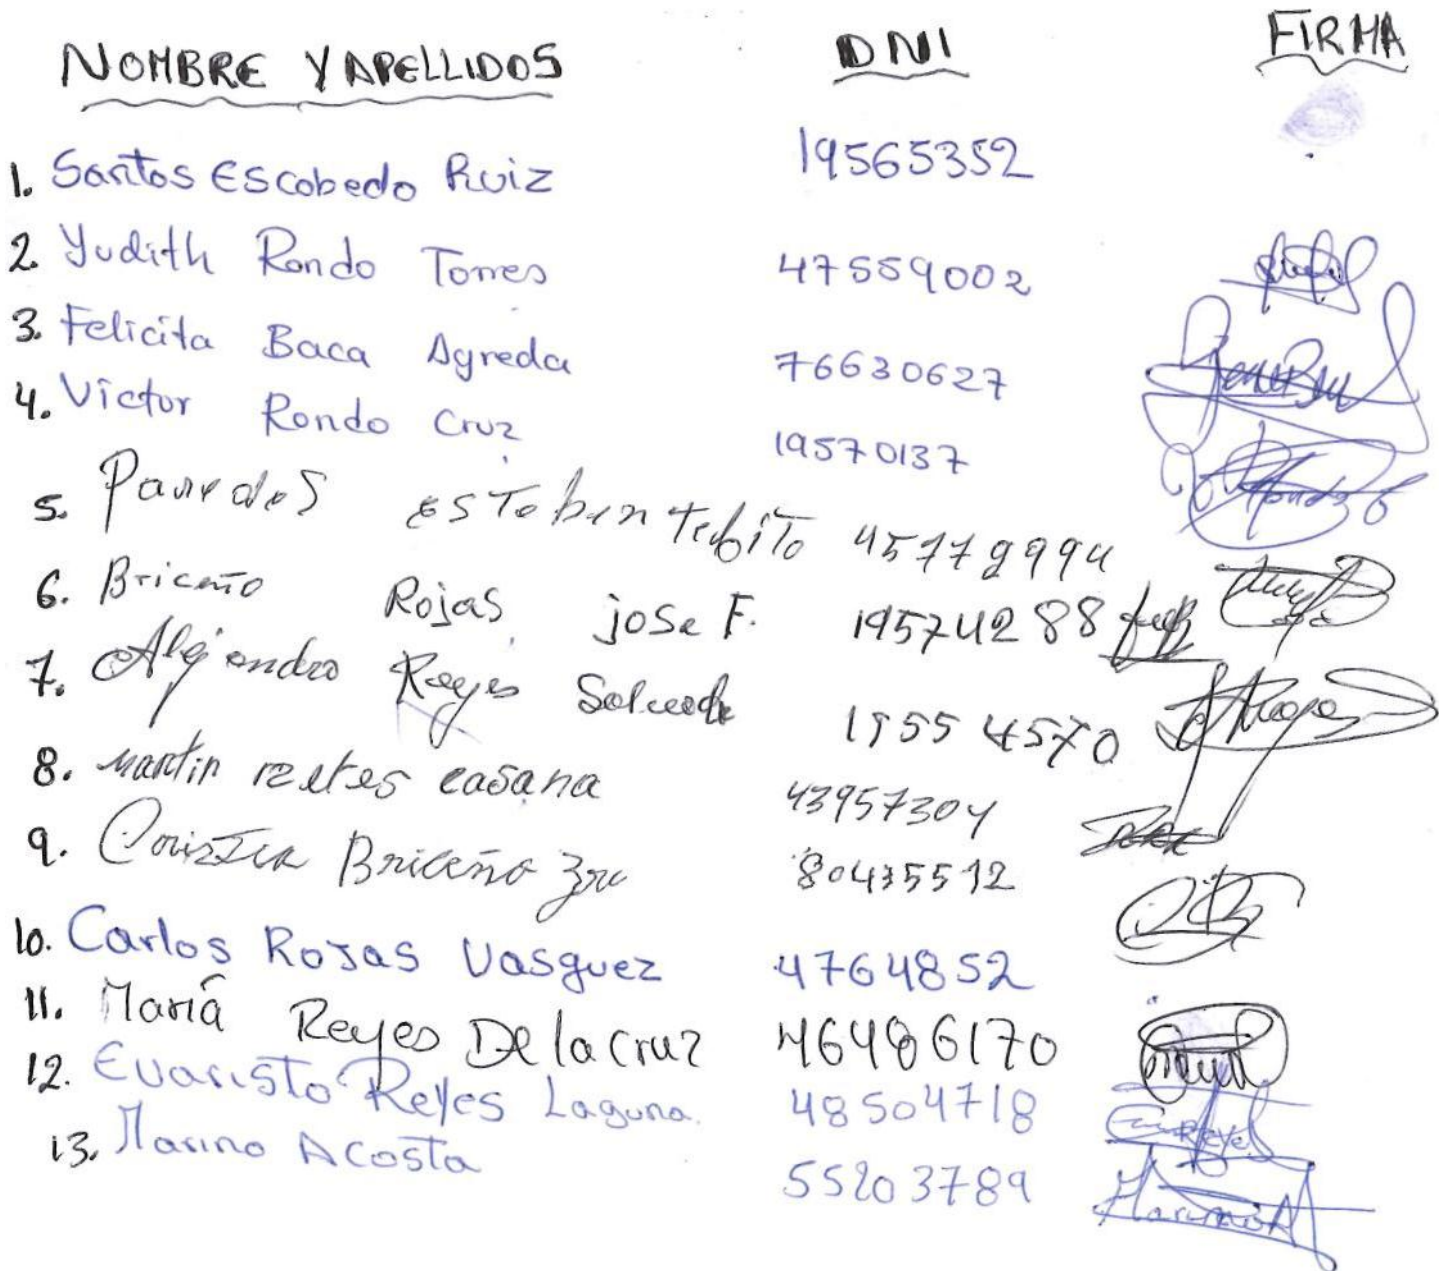 NOMBRE Y APELLIDOS DNI FIRMA
1. Santos Escobedo Ruiz 19565352
2. Yudith Rondo Torres 47559002
3. Felicita Baca Agreda 76630627
4. Victor Rondo Cruz 19570137
5. Paredes esteban
6. Briceño Rojas jose F. 19574288
7. Alejandro Reyes 19554570
8. martin casana 43957304
9. Briceño 80435512
10. Carlos Rojas Vasquez 4764852
11. María Reyes De la cruz 46486170
12. Evaristo Reyes Laguna. 48504718
13. Marino Acosta 55203789